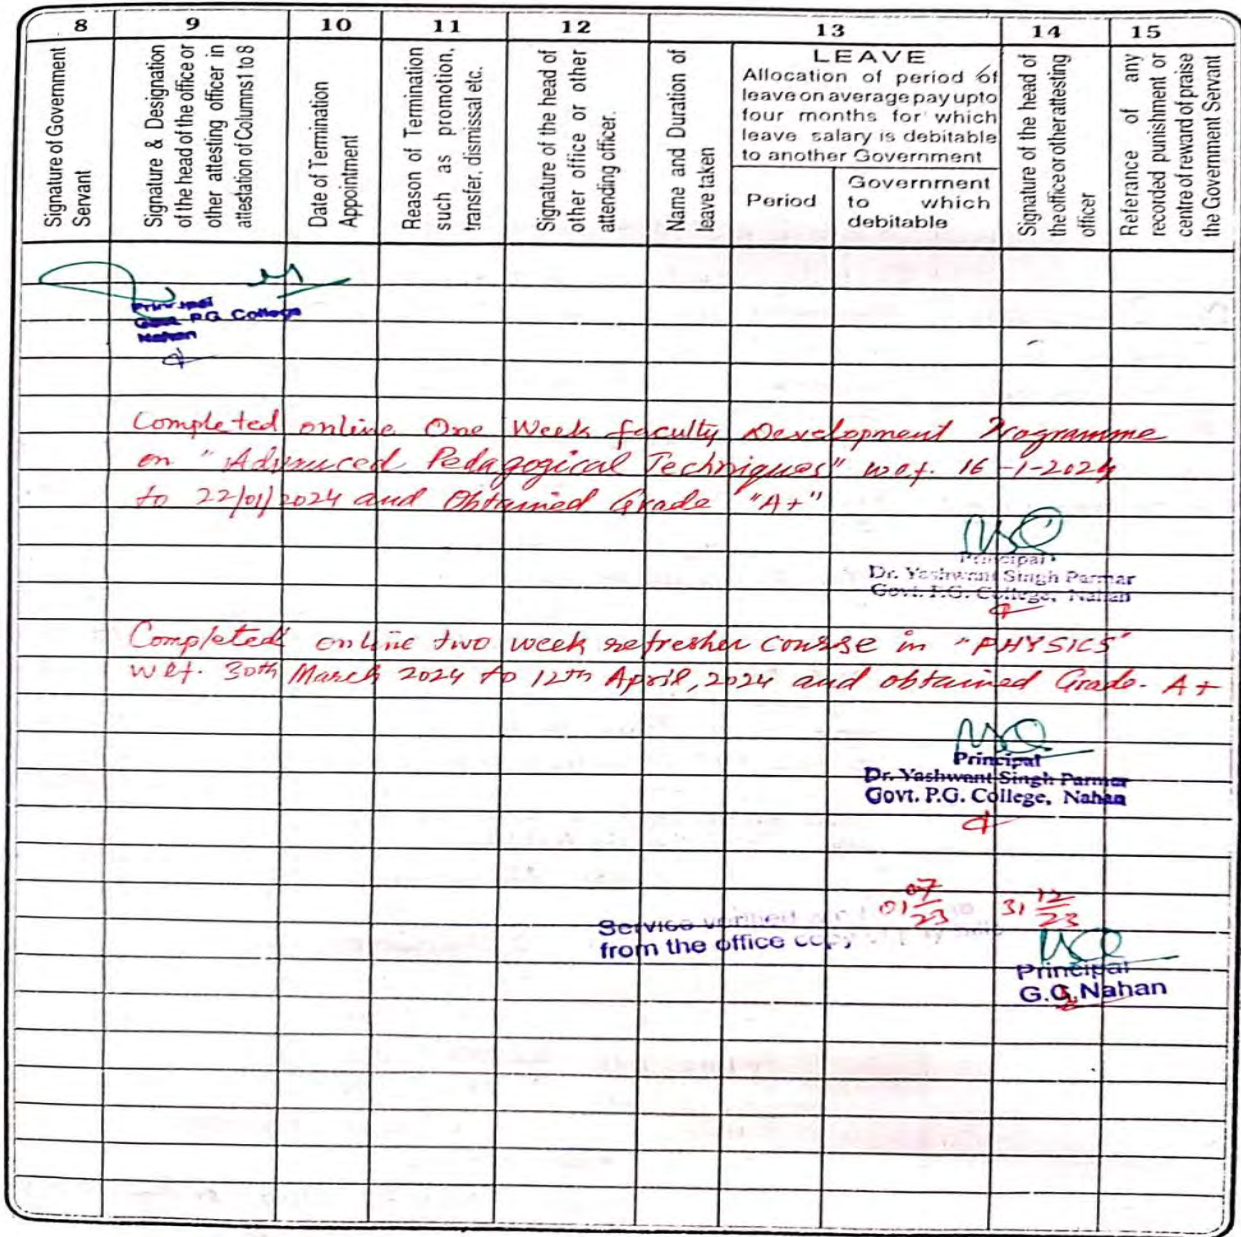 8 9 10 11 12 13 14 15
Signature of Government
Servant
Signature & Designation
of the head of the office or
other attesting officer in
attestation of Columns1 to 8
Date of Termination
Appointment
Reason of Termination
such as promotion,
transfer, dismissal etc.
Signature of the head of
other office or other
attending officer.
Name and Duration of
leave taken
LEAVE
Allocation of period of
leave on average pay upto
four months for which
leave salary is debitable
to another Government
Period
Government
to which
debitable
Signature of the head of
the office or other attesting
officer
Referance of any
recorded punishment or
centre of reward of praise
the Government Servant
Principal
Govt. P.G. College
Nahan
Completed online One Week faculty Development Programme
on "Advanced Pedagogical Techniques" w.e.f. 16-1-2024
to 22/01/2024 and Obtained Grade "A+"
Principal
Dr. Yashwant Singh Parmar
Govt. P.G. College, Nahan
Completed online two week refresher course in "PHYSICS"
wef. 30th March 2024 to 12th April, 2024 and obtained Grade- A+
Principal
Dr. Yashwant Singh Parmar
Govt. P.G. College, Nahan
01 07/23 31 12/23
Service verified
from the office copy
Principal
G.C. Nahan